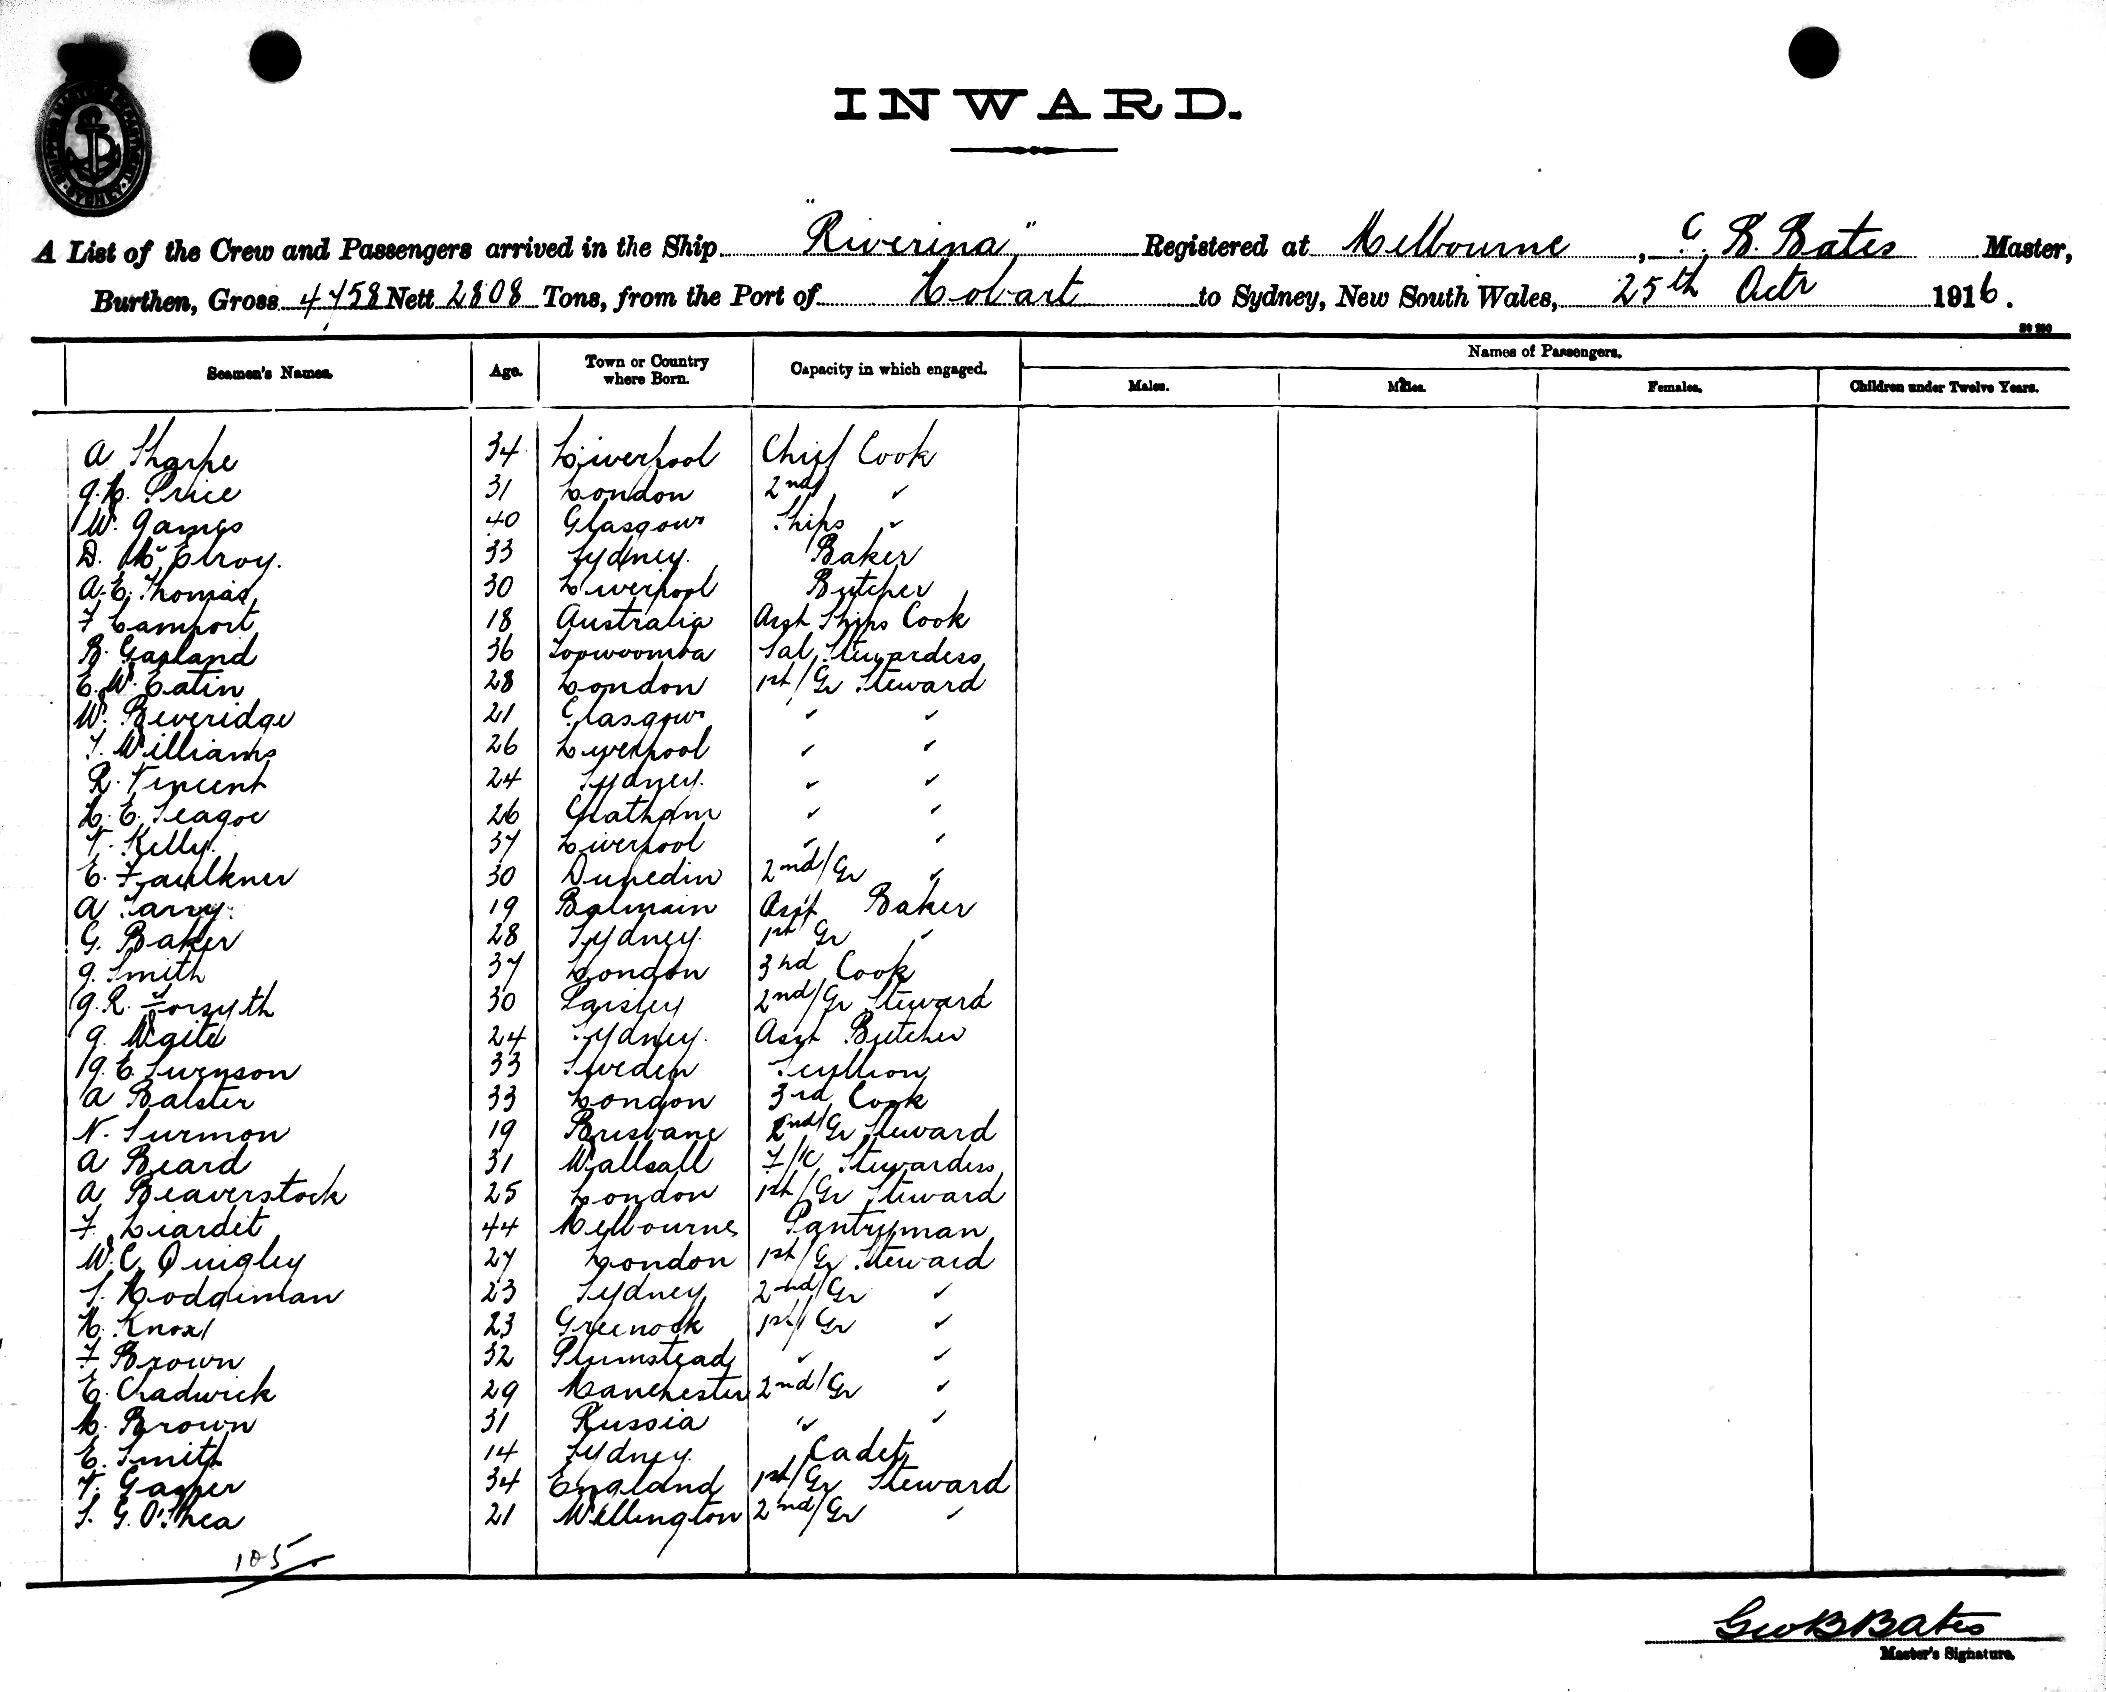 INWARD.
A List of the Crew and Passengers arrived in the Ship "Riverina" Registered at Melbourne, C. B. Bates Master,
Burthen, Gross 4758 Nett 2808 Tons, from the Port of Hobart to Sydney, New South Wales, 25th Octr 1916.
Names of Passengers.
Seamen's Names. Age. Town or Country where Born. Capacity in which engaged. Males. Males. Females. Children under Twelve Years.
A Sharpe 34 Liverpool Chief Cook
J.H. Price 31 London 2nd "
W. James 40 Glasgow Ships "
D. McElroy. 33 Sydney. Baker
A.E. Thomas 30 Liverpool Butcher
F Lamport 18 Australia Asst Ships Cook
B. Garland 36 Toowoomba Sal Stewardess
E. W. Eatin 28 London 1st/Gr Steward
W. Beveridge 21 Glasgow " "
T. Williams 26 Liverpool " "
R. Vincent 24 Sydney. " "
H. E. Teague 26 Chatham " "
V. Kelly. 37 Liverpool " "
E. Faulkner 30 Dunedin 2nd/Gr "
A Tarry. 19 Balmain Asst Baker
G. Baker 28 Sydney. 1st Gr "
J. Smith 37 London 3rd Cook
J.R. Forsyth 30 Paisley 2nd/Gr Steward
J. Waite 24 Sydney. Asst Butcher
J.E. Swenson 33 Sweden Scullion
A Balster 33 London 3rd Cook
N. Surmon 19 Brisbane 2nd/Gr Steward
A Beard 31 Wallsall F/C Stewardess
A Beaverstock 25 London 1st/Gr Steward
F Liardet 44 Melbourne Pantryman
W.C. Quigley 27 London 1st/Gr Steward
S. Hodgeman 23 Sydney 2nd/Gr "
H. Knox 23 Greenock 1st/Gr "
F Brown 32 Plumstead " "
E. Chadwick 29 Manchester 2nd/Gr "
M. Brown 31 Russia " "
E. Smith 14 Sydney. Cadet
V. Gasper 34 England 1st/Gr Steward
S. G. O'Shea 21 Wellington 2nd/Gr "
105
Geo B Bates
Master's Signature.